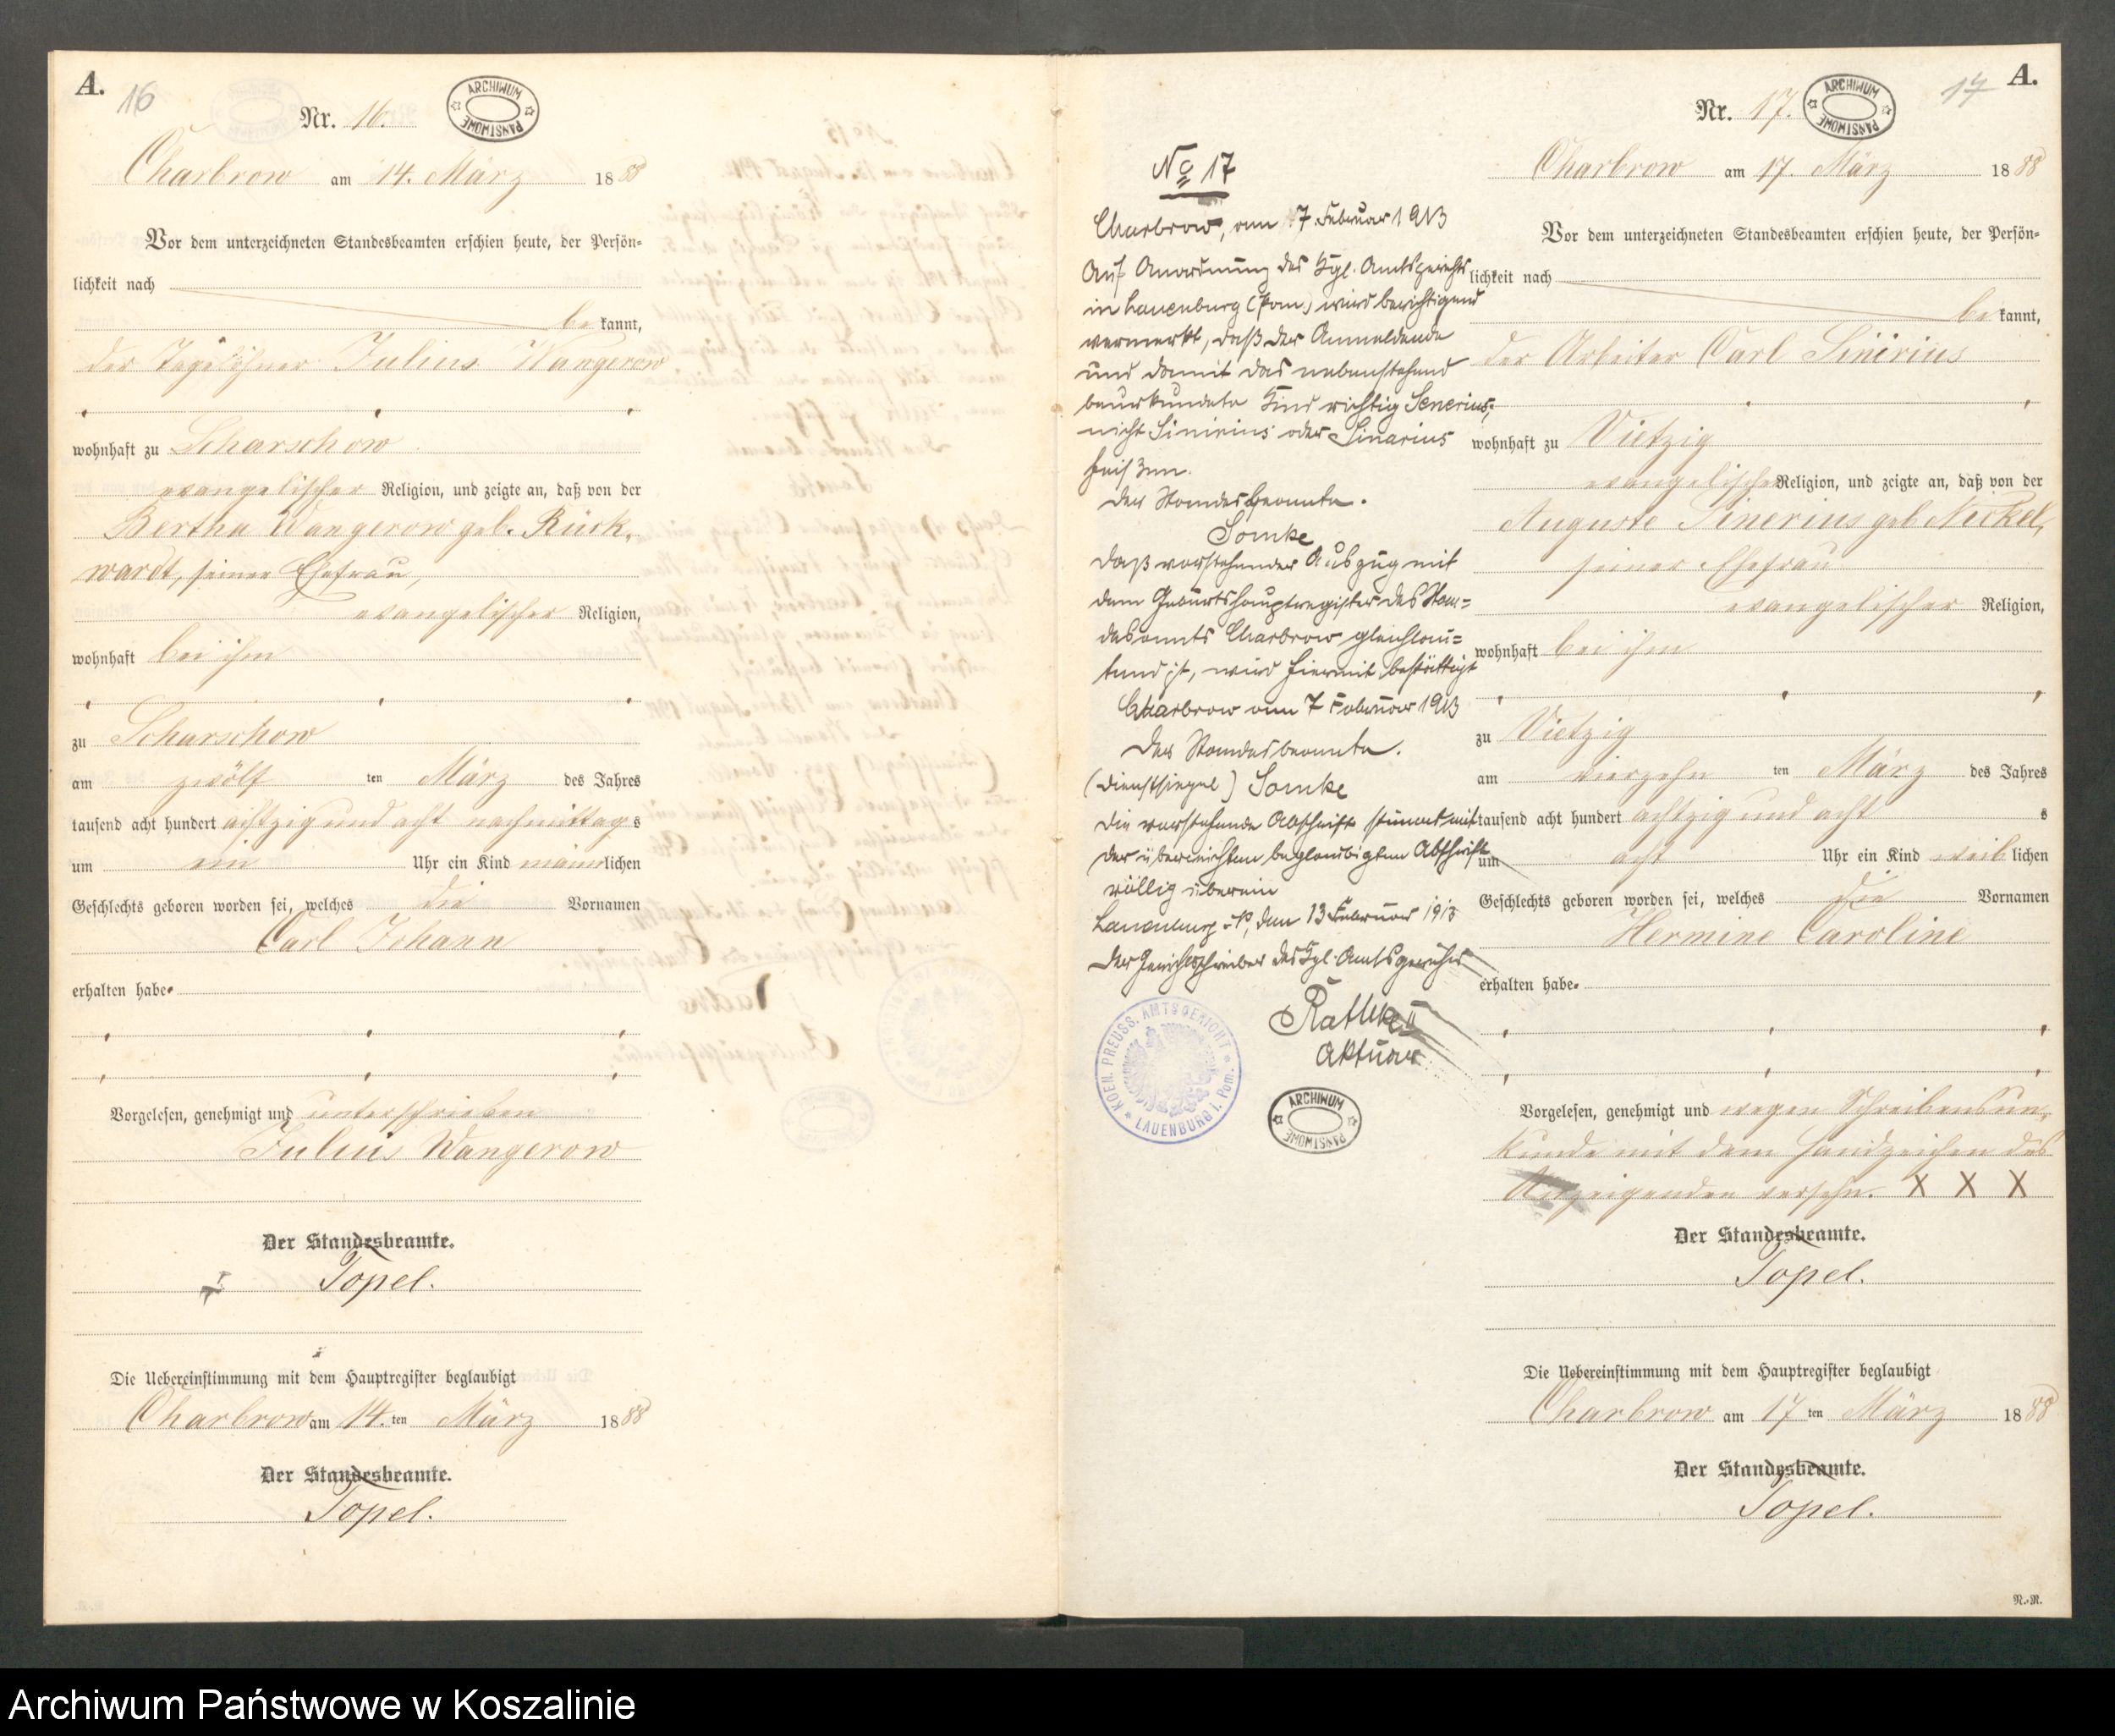 A.
16
Nr. 16.
ARCHIWUM PAŃSTWOWE
Charbrow am 14. März 1888
Vor dem unterzeichneten Standesbeamten erschien heute, der Persön-
lichkeit nach
bekannt,
der Tagelöhner Julius Wangerow
wohnhaft zu Scharschow
evangelischer Religion, und zeigte an, daß von der
Bertha Wangerow geb. Rück-
wardt, seiner Ehefrau,
evangelischer Religion,
wohnhaft bei ihm
zu Scharschow
am zwölf ten März des Jahres
tausend acht hundert achtzig und acht nachmittags
um ein Uhr ein Kind männlichen
Geschlechts geboren worden sei, welches die Vornamen
Carl Johann
erhalten habe.
Vorgelesen, genehmigt und unterschrieben
Julius Wangerow
Der Standesbeamte.
Topel.
Die Uebereinstimmung mit dem Hauptregister beglaubigt
Charbrow am 14. ten März 1888
Der Standesbeamte.
Topel.
No 17
Charbrow, am 7 Februar 1913
Auf Anordnung des Kgl. Amtsgerichts
in Lauenburg (Pom) wird berichtigend
vermerkt, daß der Anmeldende
und damit das nebenstehend
beurkundete Kind richtig Senerius,
nicht Sinirius oder Sinarius
heißen.
Der Standesbeamte.
Somke
Daß vorstehender Auszug mit
dem Geburtshauptregister des Stan-
desamts Charbrow gleichlau-
tend ist, wird hiermit bestättigt
Charbrow am 7 Februar 1913
Der Standesbeamte.
(Dienstsiegel) Somke
Die vorstehende Abschrift stimmt mit
der übereinichten beglaubigten Abschrift
völlig überein
Lauenburg i/P, den 13 Februar 1913
Der Gerichtsschreiber des Kgl. Amtsgerichts
Rathke II
Aktuar
KOEN. PREUSS. AMTSGERICHT * LAUENBURG i. Pom. *
ARCHIWUM PAŃSTWOWE
17
A.
Nr. 17.
ARCHIWUM PAŃSTWOWE
Charbrow am 17. März 1888
Vor dem unterzeichneten Standesbeamten erschien heute, der Persön-
lichkeit nach
bekannt,
der Arbeiter Carl Sinirius
wohnhaft zu Vietzig
evangelischer Religion, und zeigte an, daß von der
Auguste Sinerius geb Nickel,
seiner Ehefrau
evangelischer Religion,
wohnhaft bei ihm
zu Vietzig
am vierzehn ten März des Jahres
tausend acht hundert achtzig und acht s
um acht Uhr ein Kind weiblichen
Geschlechts geboren worden sei, welches die Vornamen
Hermine Caroline
erhalten habe.
Vorgelesen, genehmigt und wegen Schreibensun-
kunde mit dem Handzeichen des
Anzeigenden versehn. X X X
Der Standesbeamte.
Topel.
Die Uebereinstimmung mit dem Hauptregister beglaubigt
Charbrow am 17 ten März 1888
Der Standesbeamte.
Topel.
N.-R.
Archiwum Państwowe w Koszalinie